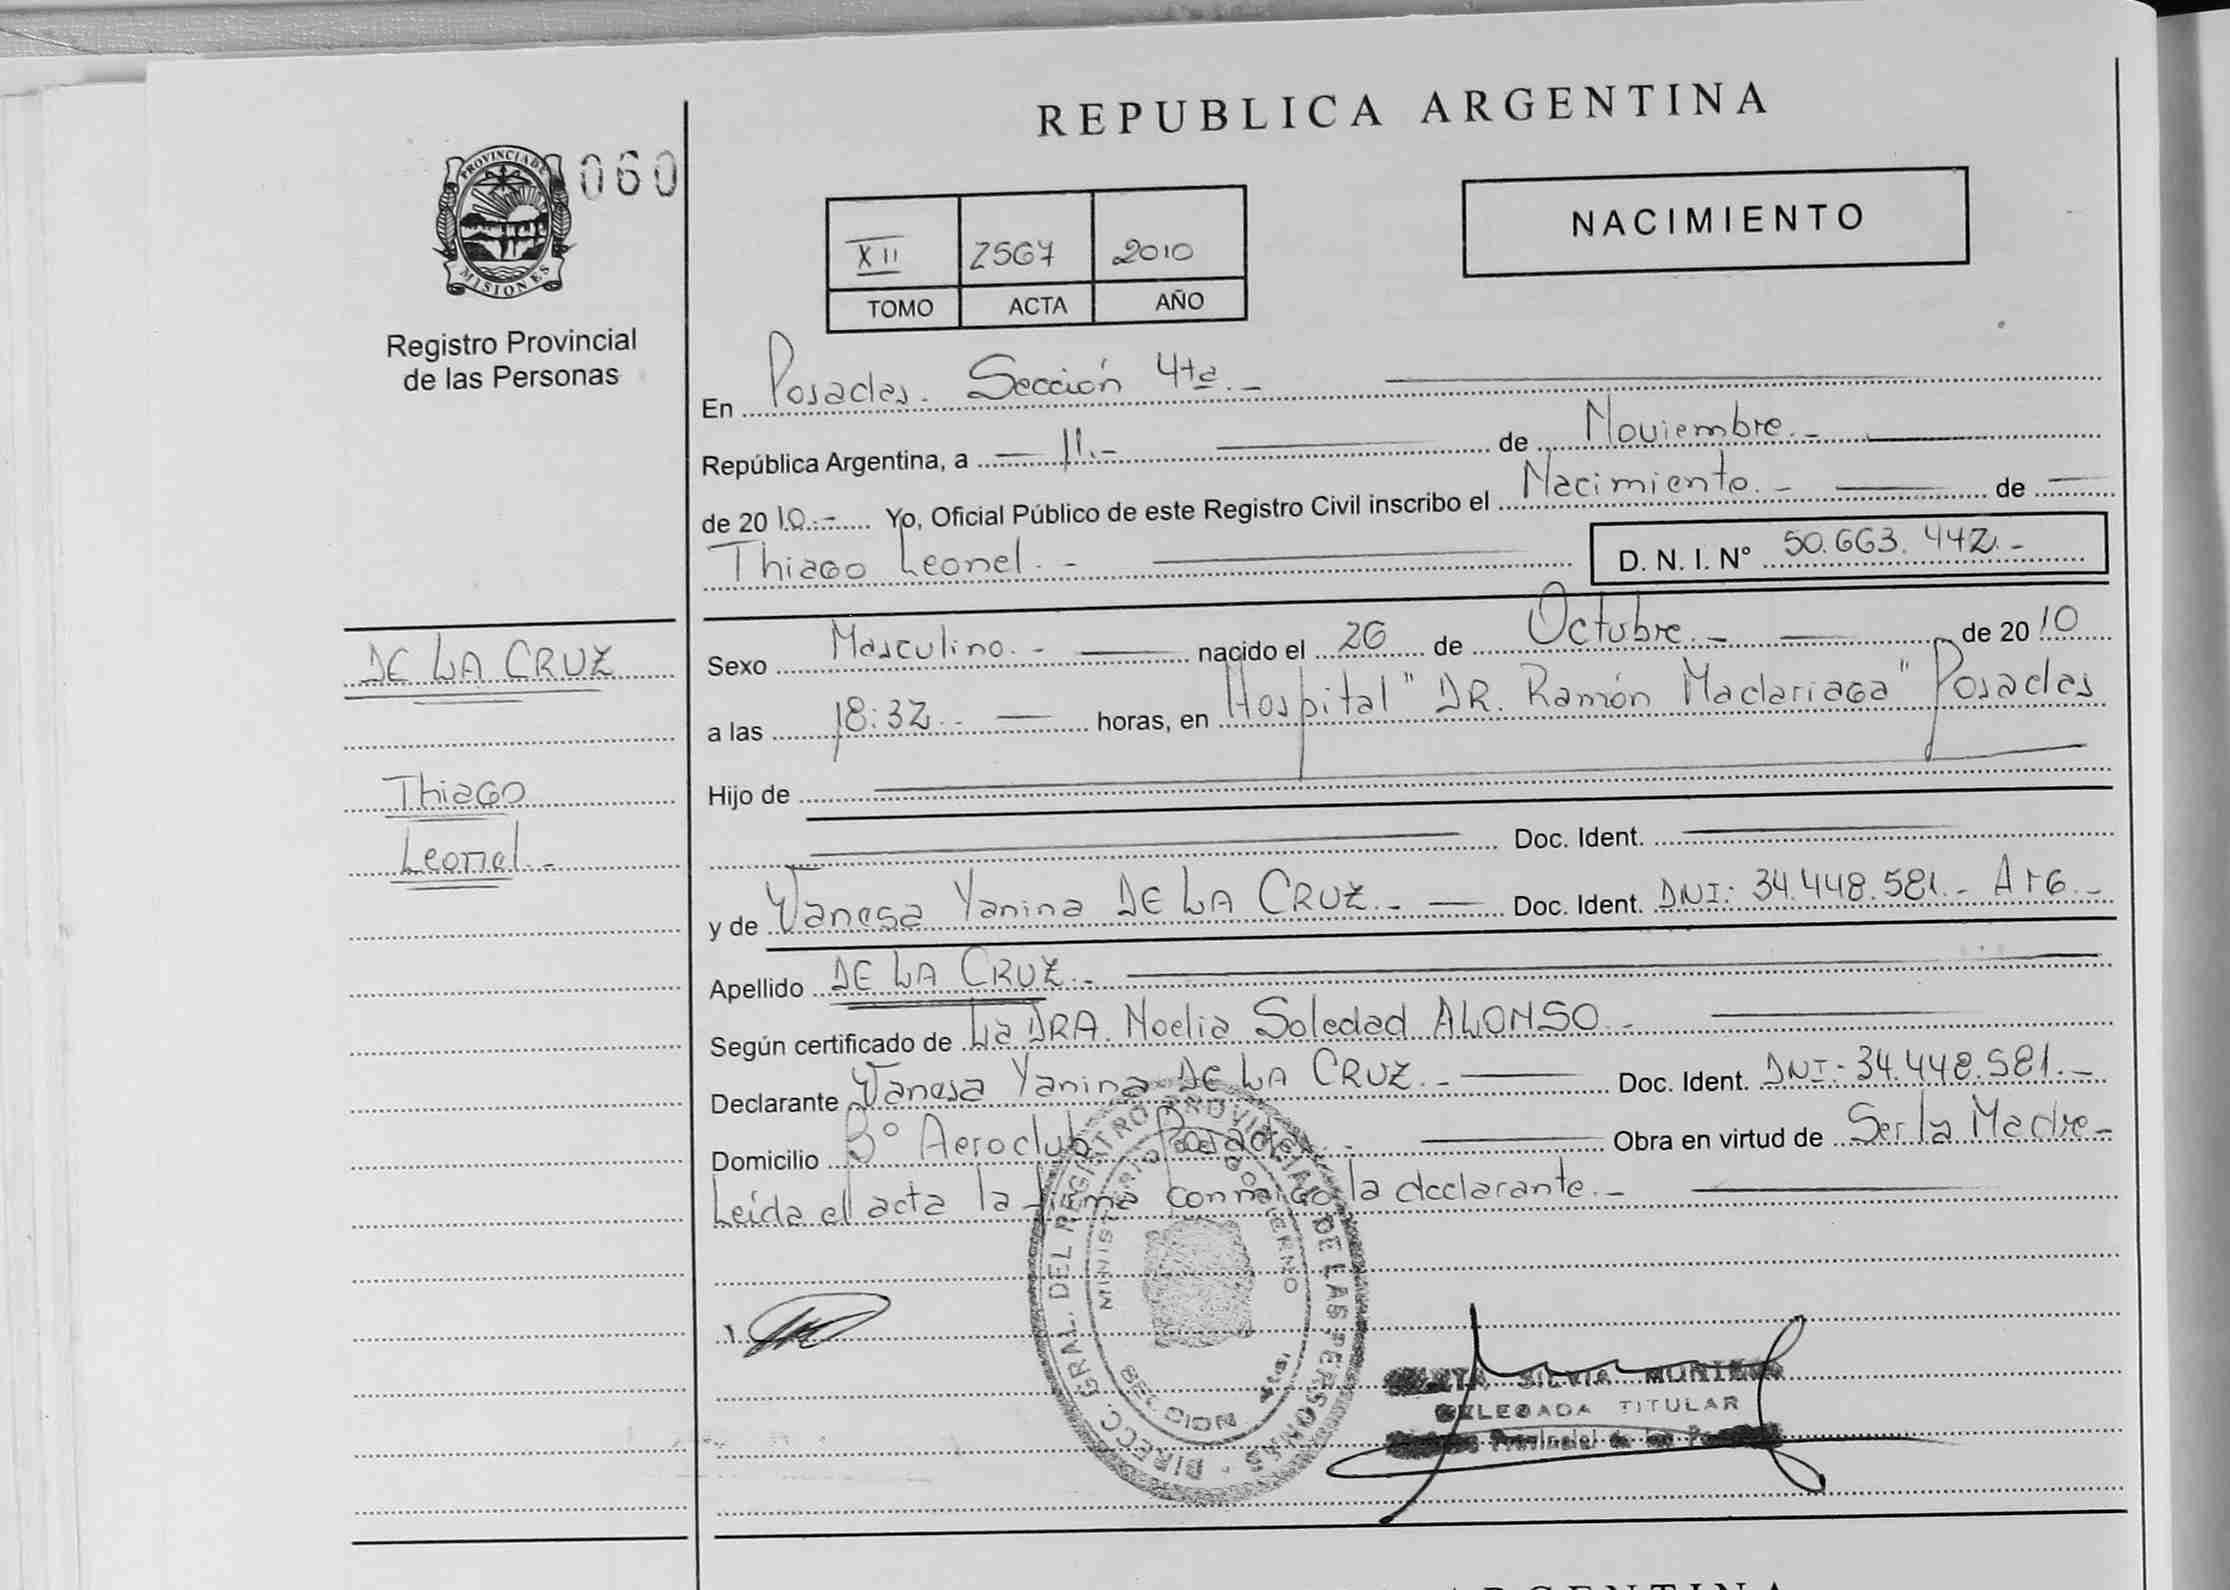 REPUBLICA ARGENTINA
PROVINCIA DE
MISIONES
060
Registro Provincial
de las Personas
XII 2567 2010
TOMO ACTA AÑO
NACIMIENTO
En Posadas. Sección 4ta.-
República Argentina, a 11.- de Noviembre.-
de 2010.- Yo, Oficial Público de este Registro Civil inscribo el Nacimiento.- de
Thiago Leonel.- D. N. I. Nº 50.663.442.-
DE LA CRUZ
Thiago
Leonel.-
Sexo Masculino.- nacido el 26 de Octubre.- de 2010
a las 18:32.- horas, en Hospital "DR. Ramón Madariaga" Posadas
Hijo de
Doc. Ident.
y de Vanesa Yanina DE LA CRUZ.- Doc. Ident. DNI: 34.448.581.- Arg.-
Apellido DE LA CRUZ.-
Según certificado de La DRA. Noelia Soledad ALONSO.-
Declarante Vanesa Yanina DE LA CRUZ.- Doc. Ident. DNI: 34.448.581.-
Domicilio Bº Aeroclub Posadas.- Obra en virtud de Ser la Madre-
Leída el acta la firma conmigo la declarante.-
DIRECC. GRAL. DEL REGISTRO PROVINCIAL DE LAS PERSONAS
MINISTERIO DE GOBIERNO
SILVIA
DELEGADA TITULAR
Provincial de las